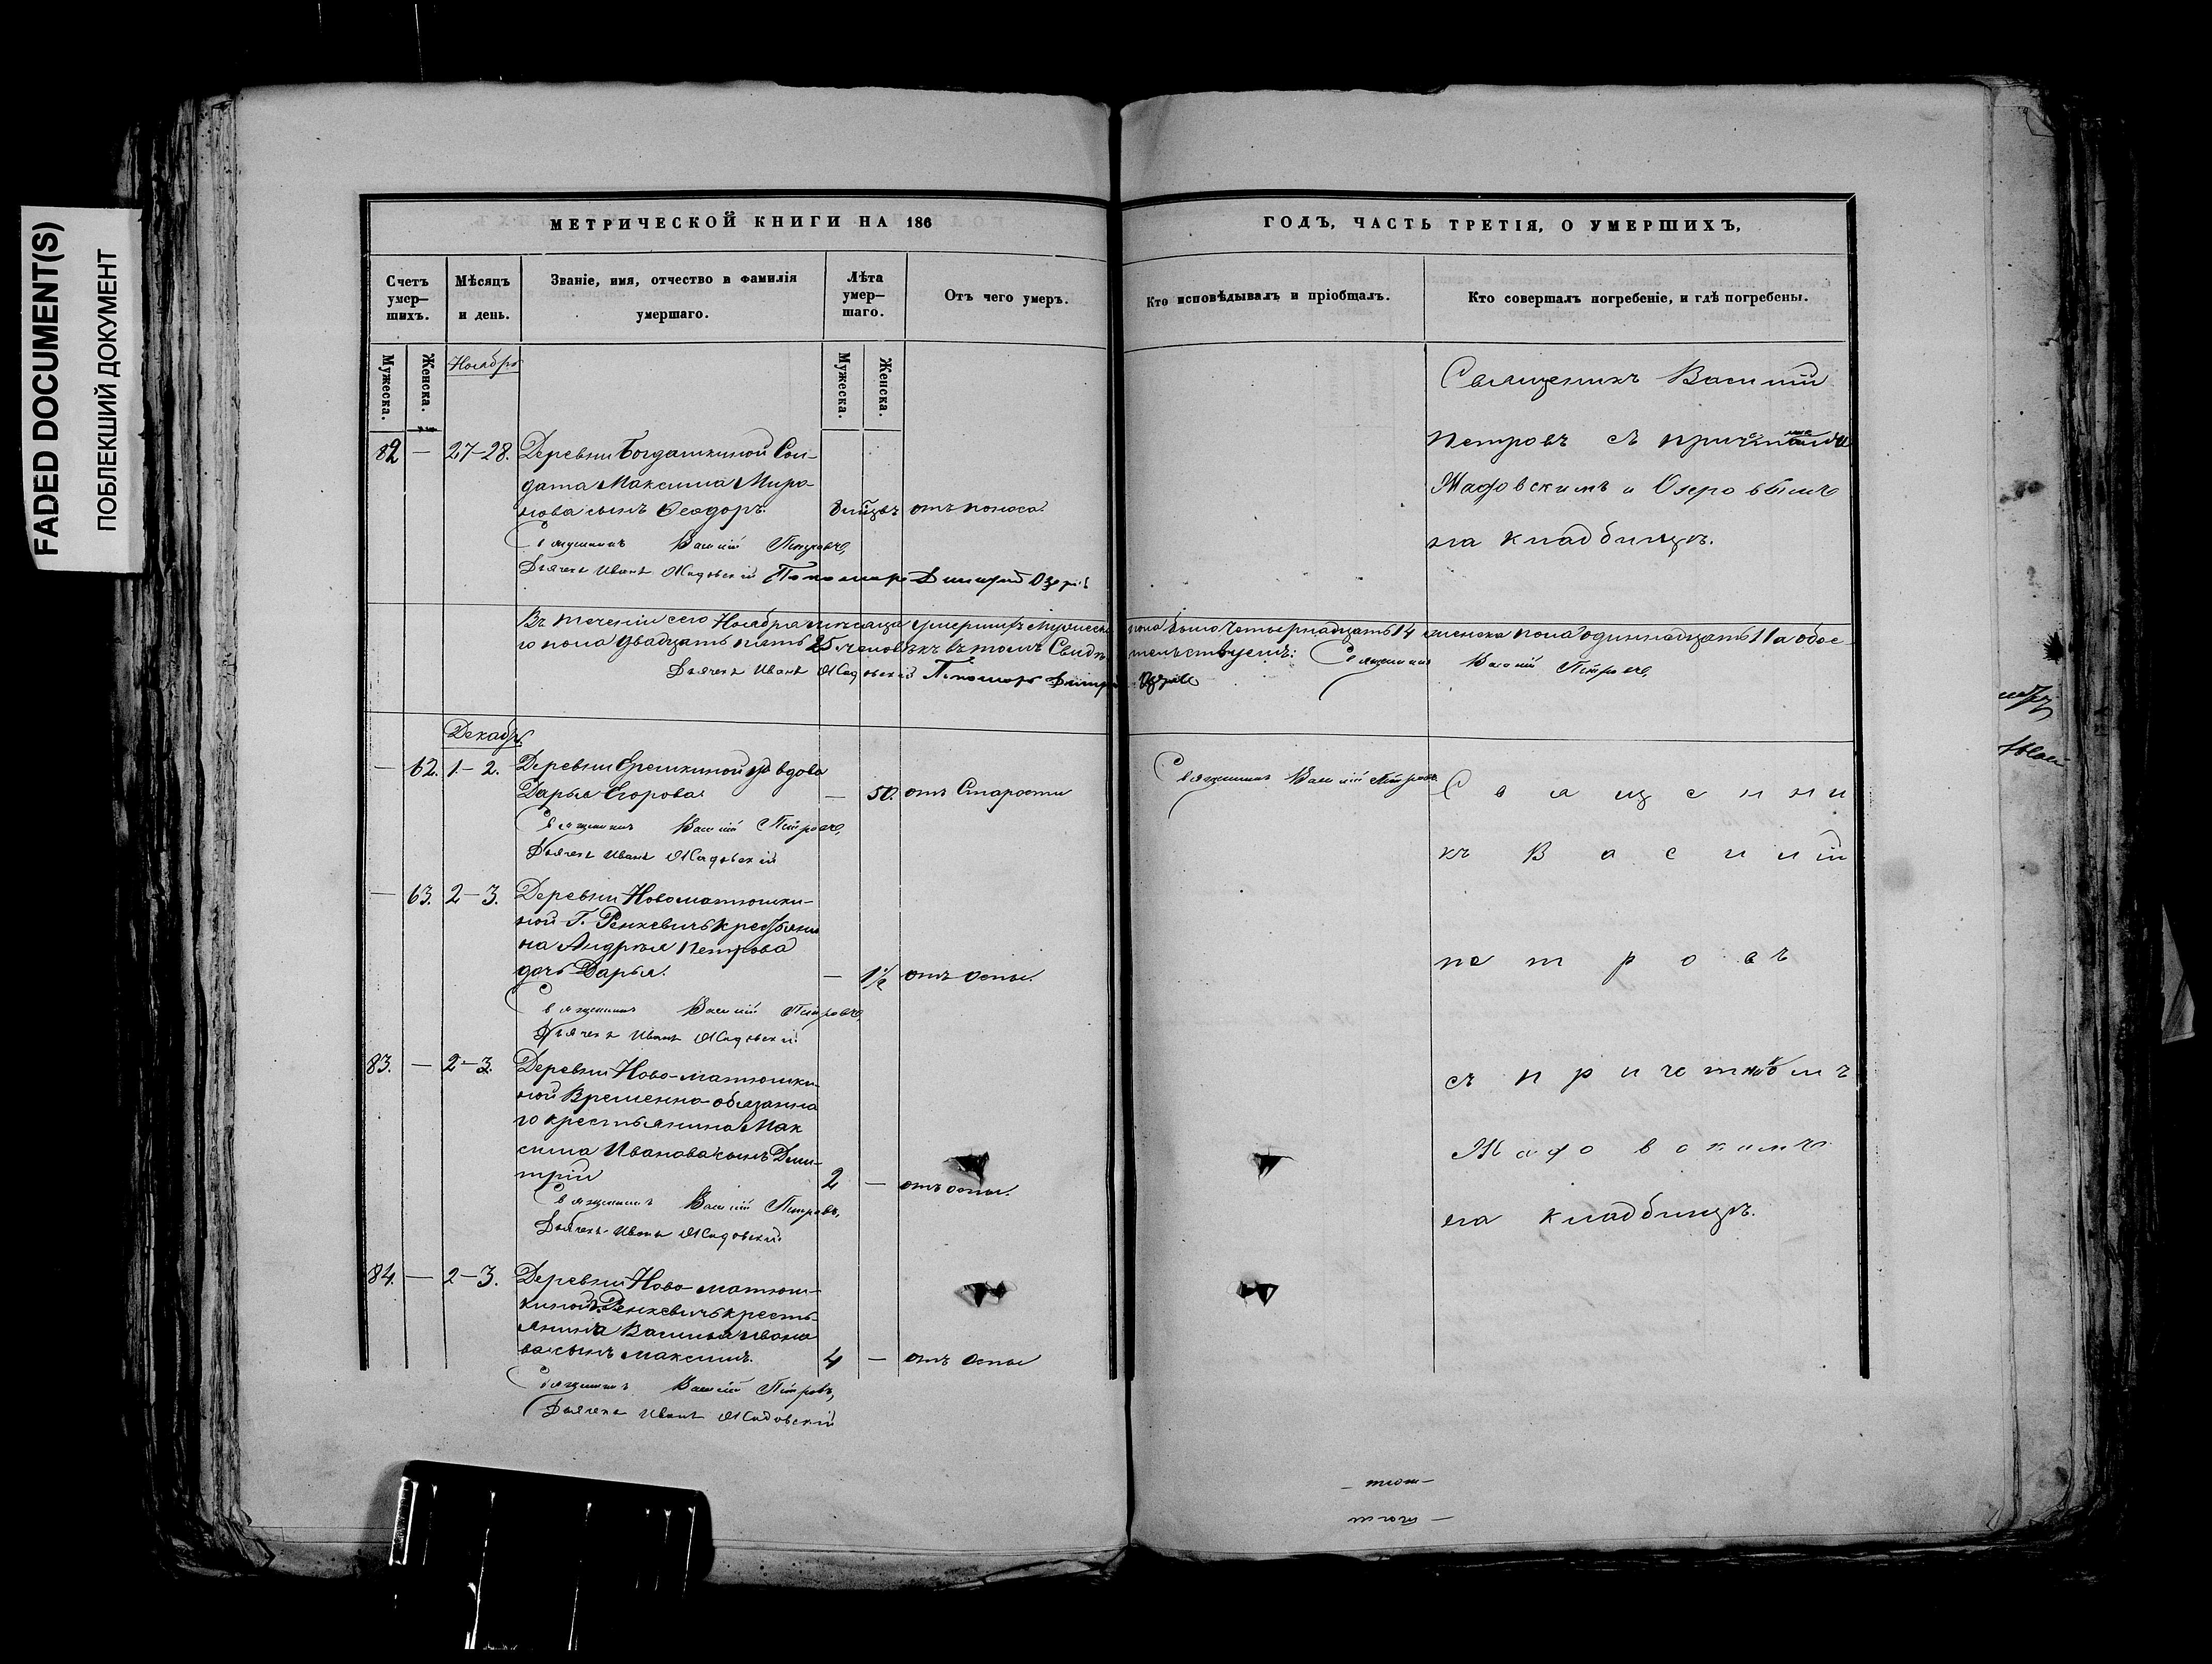 FADED DOCUMENT(S)
ПОБЛЕКШИЙ ДОКУМЕНТ
МЕТРИЧЕСКОЙ КНИГИ НА 186
ГОДЪ, ЧАСТЬ ТРЕТІЯ, О УМЕРШИХЪ,
Счетъ умер-
шихъ.
Мѣсяцъ
и день.
Званіе, имя, отчество и фамилія
умершаго.
Лѣта
умер-
шаго.
Отъ чего умеръ.
Кто исповѣдывалъ и пріобщалъ.
Кто совершалъ погребеніе, и гдѣ погребены.
Мужеска.
Женска.
Мужеска.
Женска.
Ноябрь
82 — 27-28. Деревни Богдашкиной Сол-
дата Максима Миро-
нова сынъ Ѳеодоръ. отъ поноса.
Священникъ Василій Петровъ,
Дьячекъ Иванъ Жадовскій Пономарь Димитрій Озеровъ
Священникъ Василій
Петровъ съ
Жадовскимъ и Озеровымъ
на кладбищѣ.
Въ теченіи сего Ноября мѣсяца умершихъ мужеска пола было Четырнадцать 14 женска пола одиннадцать 11 а обое-
го пола двадцать пять 25 человѣкъ въ томъ Свидѣтельствуемъ: Священникъ Василій Петровъ,
Дьячекъ Иванъ Жадовскій Пономарь Димитрій Озеровъ
Декабрь
— 62. 1-2. Деревни Ерешкиной вдова
Дарья Егорова — 50. отъ Старости
Священникъ Василій Петровъ
Священникъ Василій Петровъ,
Дьячекъ Иванъ Жадовскій
— 63. 2-3. Деревни Новоматюшки-
ной Г. Ренкевичь крестьяни
на Андрея Петрова
дочь Дарья. — 1½ отъ оспы.
Священникъ Василій Петровъ,
Дьячекъ Иванъ Жадовскій
83. — 2-3. Деревни Ново-матюшки-
ной Временно-обязанна
го крестьянина Мак
сима Иванова сынъ Дими-
трій 2 — отъ оспы.
Священникъ Василій Петровъ,
Дьячекъ Иванъ Жадовскій.
84. — 2-3. Деревни Ново-матюш-
киной Г. Ренкевичь кресть-
янина Василья Ивано
ва сынъ Максимъ. 4 — отъ Оспы
Священникъ Василій Петровъ,
Дьячекъ Иванъ Жадовскій
Священни
къ Василій
Петровъ
съ причетникомъ
Жадовскимъ
на кладбищѣ.